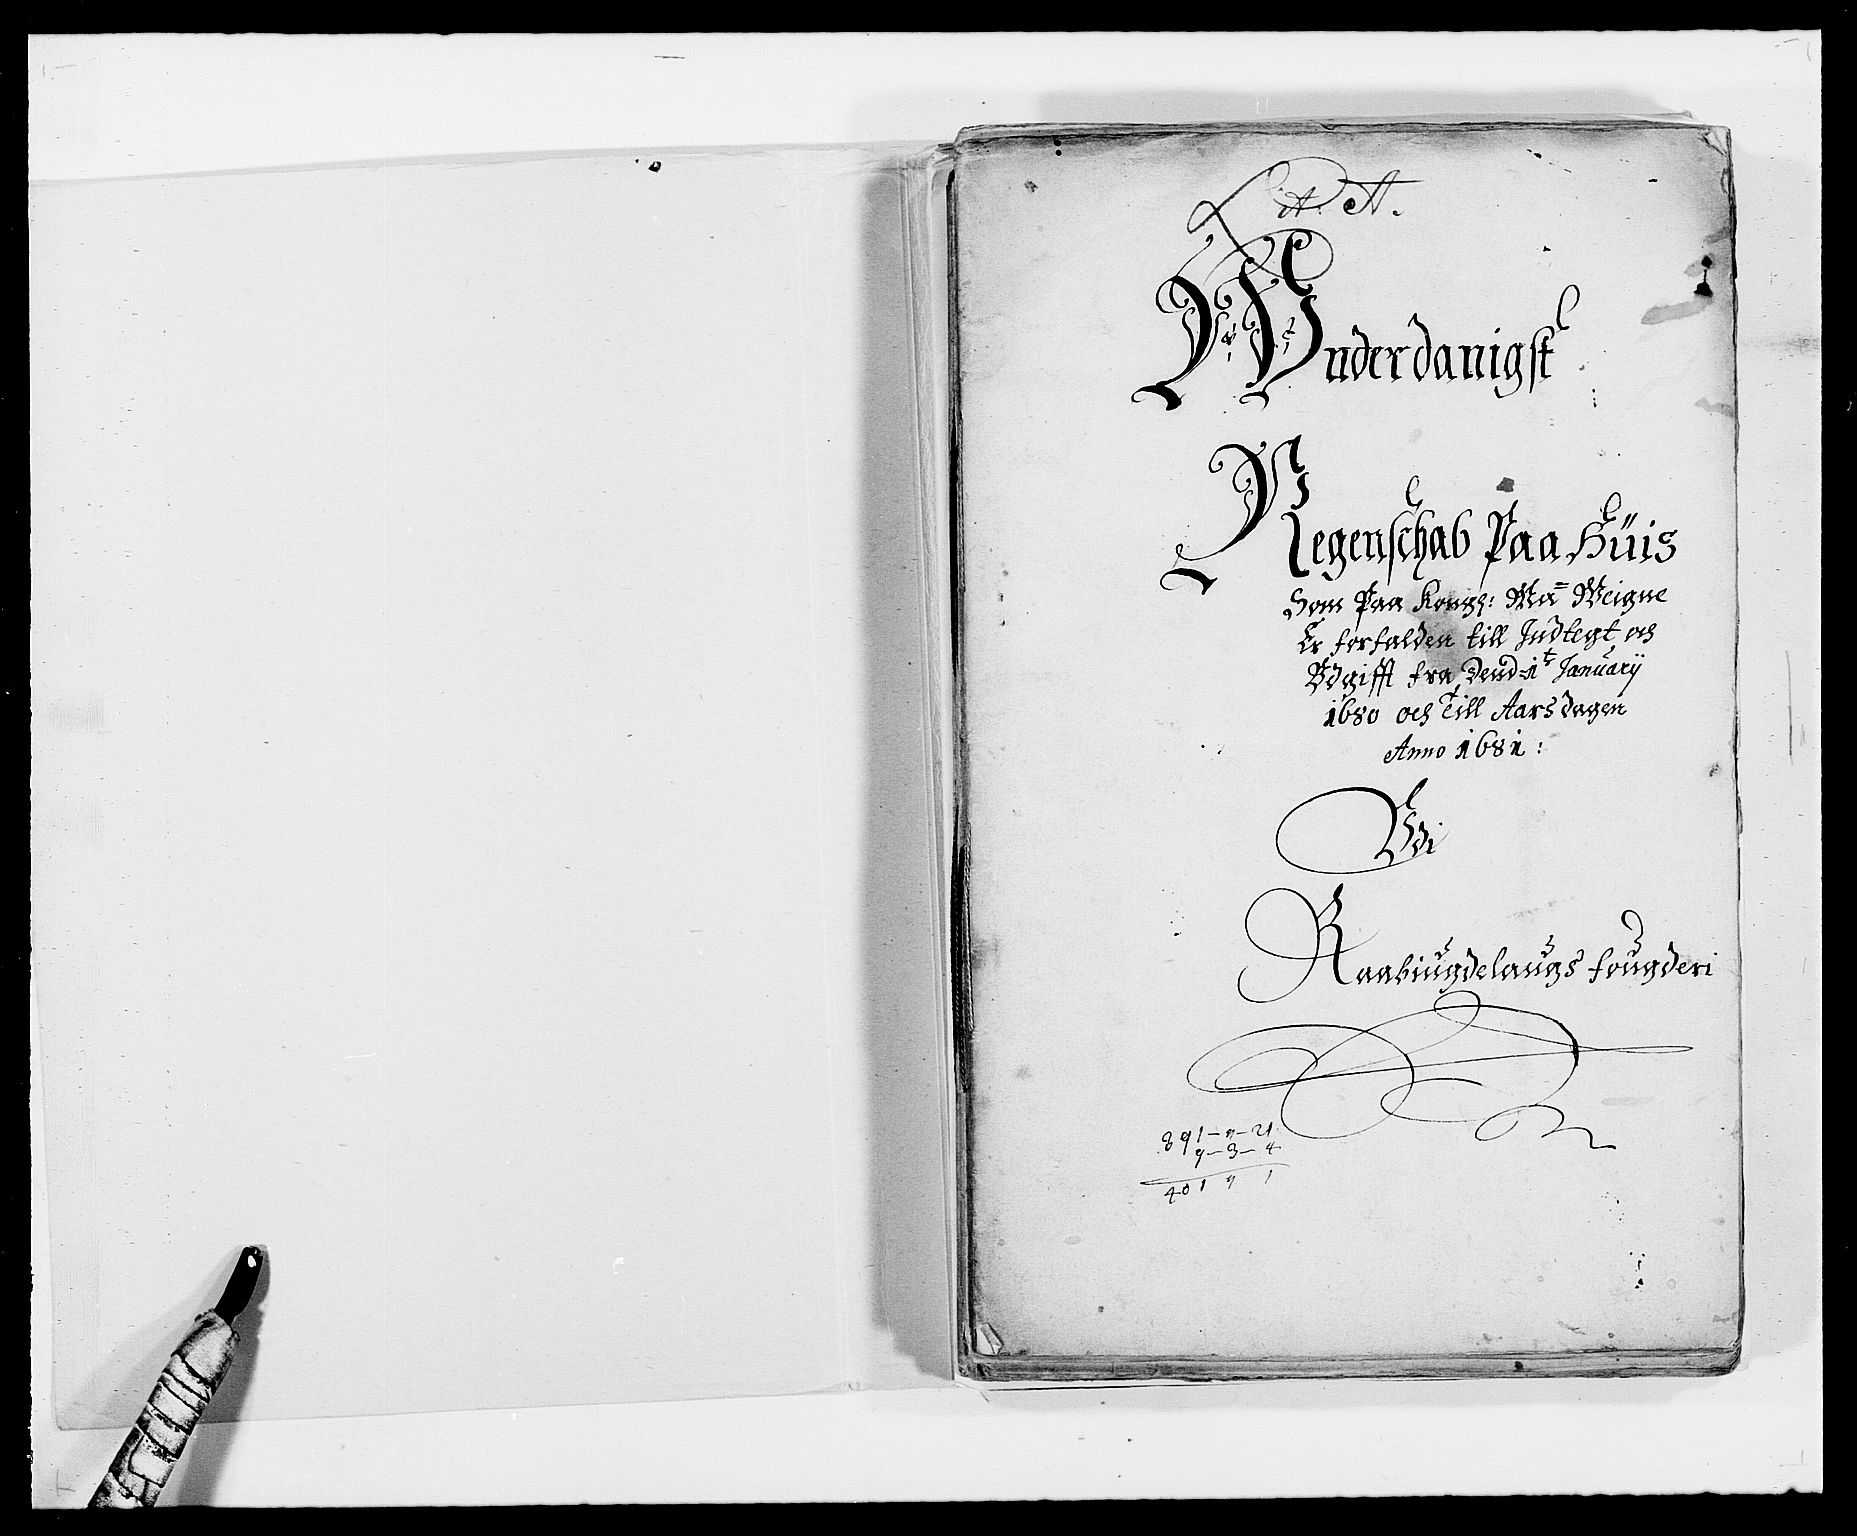 Lit: A.
Vnderdanigst
Regenschab Paa Hüis
Som Paa Kongl: Maᵗ Weigne
Er forfalden till Indtegt och
Vdgifft fra Dend 1ᵗ January
1680 och till Aarsdagen
Anno 1681:
Vdi
Raabiugdelaugs fougderi
891-"-21
9-3-4
401 " 1